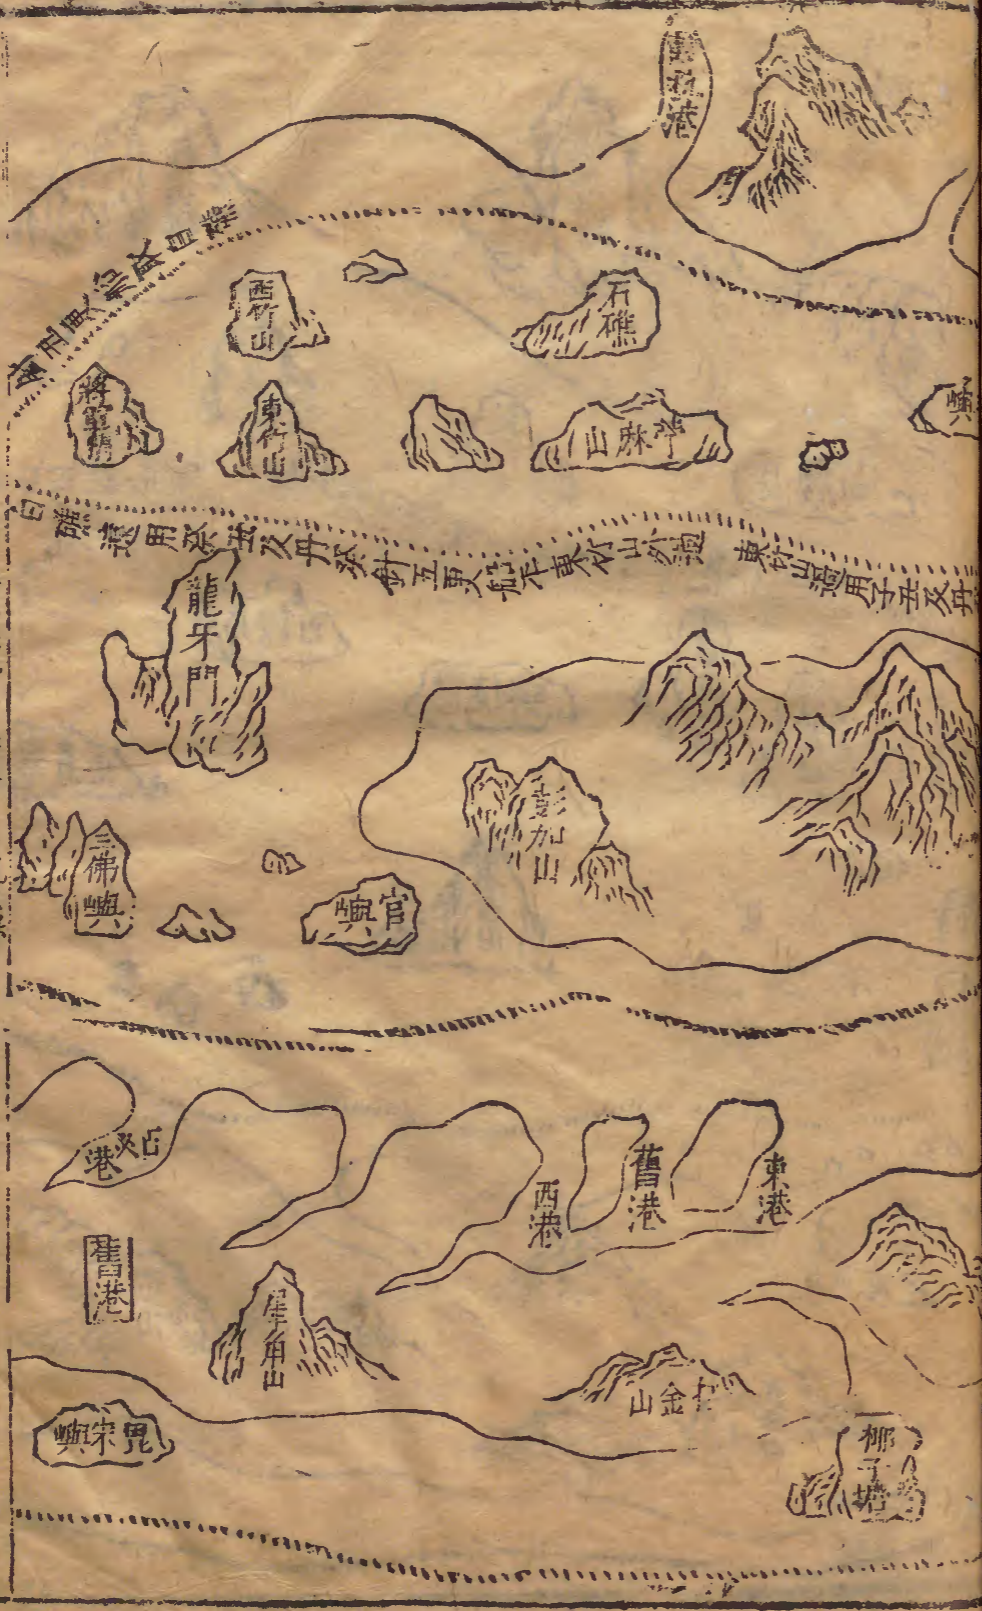 港
西竹山
石礁
將軍帽
東竹山
苧麻山
嶼
白礁
用癸丑及丹癸針五更船平東竹山外過
東竹山過用子丑及丹
龍牙門
彭加山
三佛嶼
官嶼
占必港
西港
舊港
東港
舊港
犀角山
金山
毘宋嶼
椰子塘